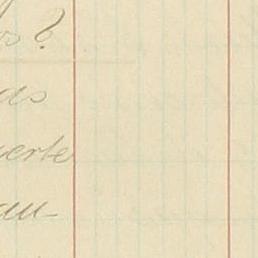 os?
as
uerte
au-